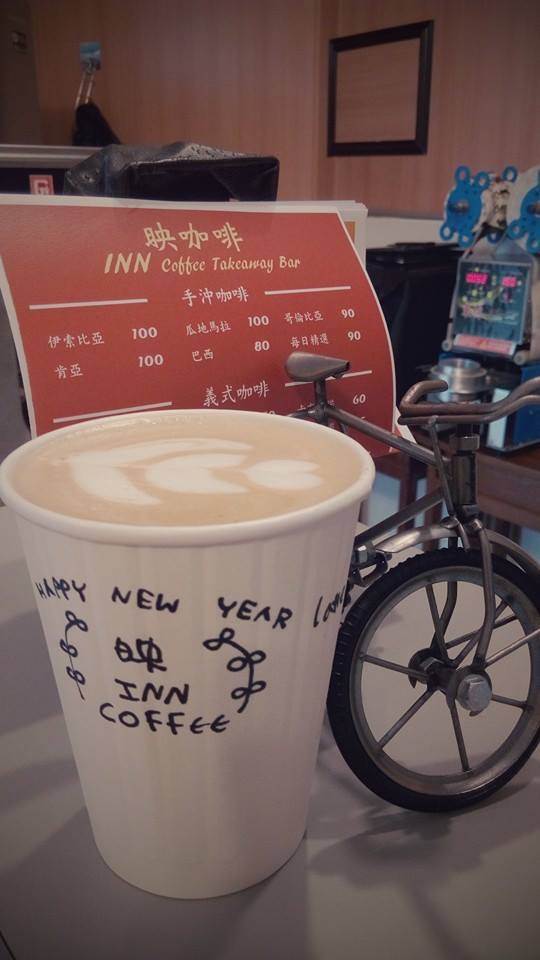 映咖啡
INN Coffee Takeaway Bar
手沖咖啡
伊索比亞 100 瓜地馬拉 100 哥倫比亞 90
肯亞 100 巴西 80 每日精選 90
義式咖啡
60
HAPPY NEW YEAR
映
INN
COFFEE